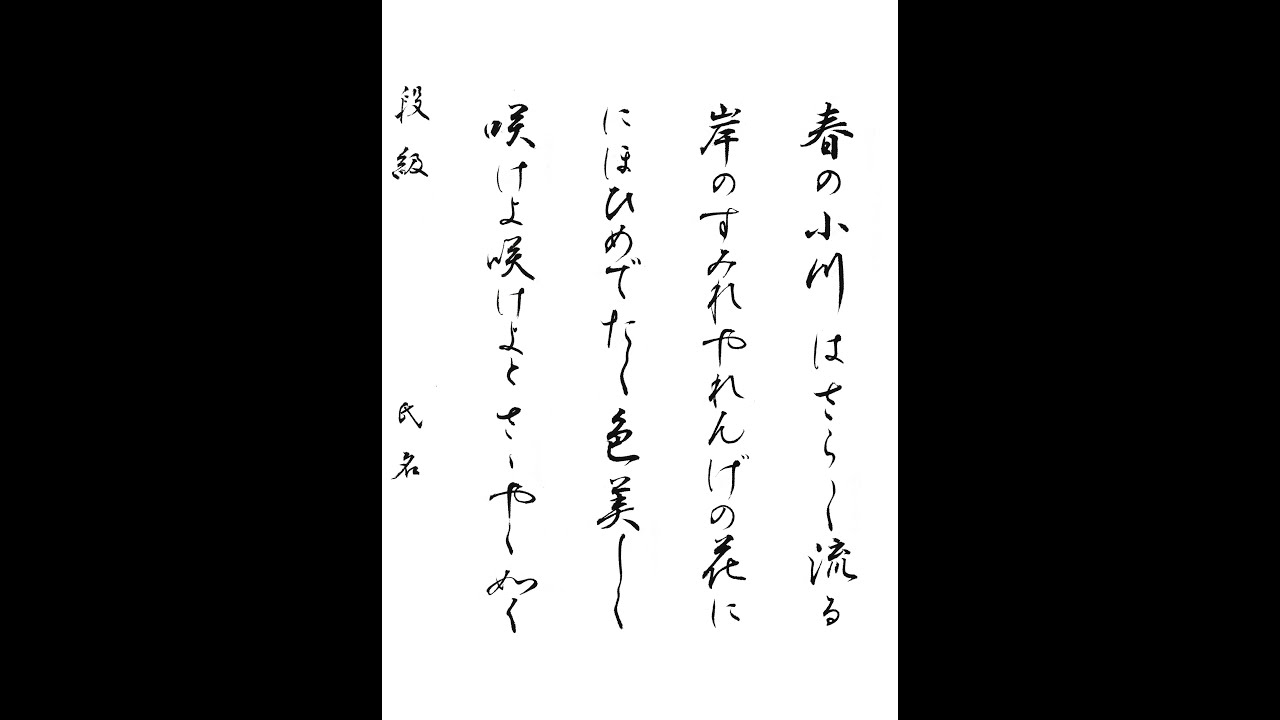 春の小川はさら〱流る
岸のすみれやれんげの花に
にほひめでたく色美しく
咲けよ咲けよとさゝやく如く
段級 氏名